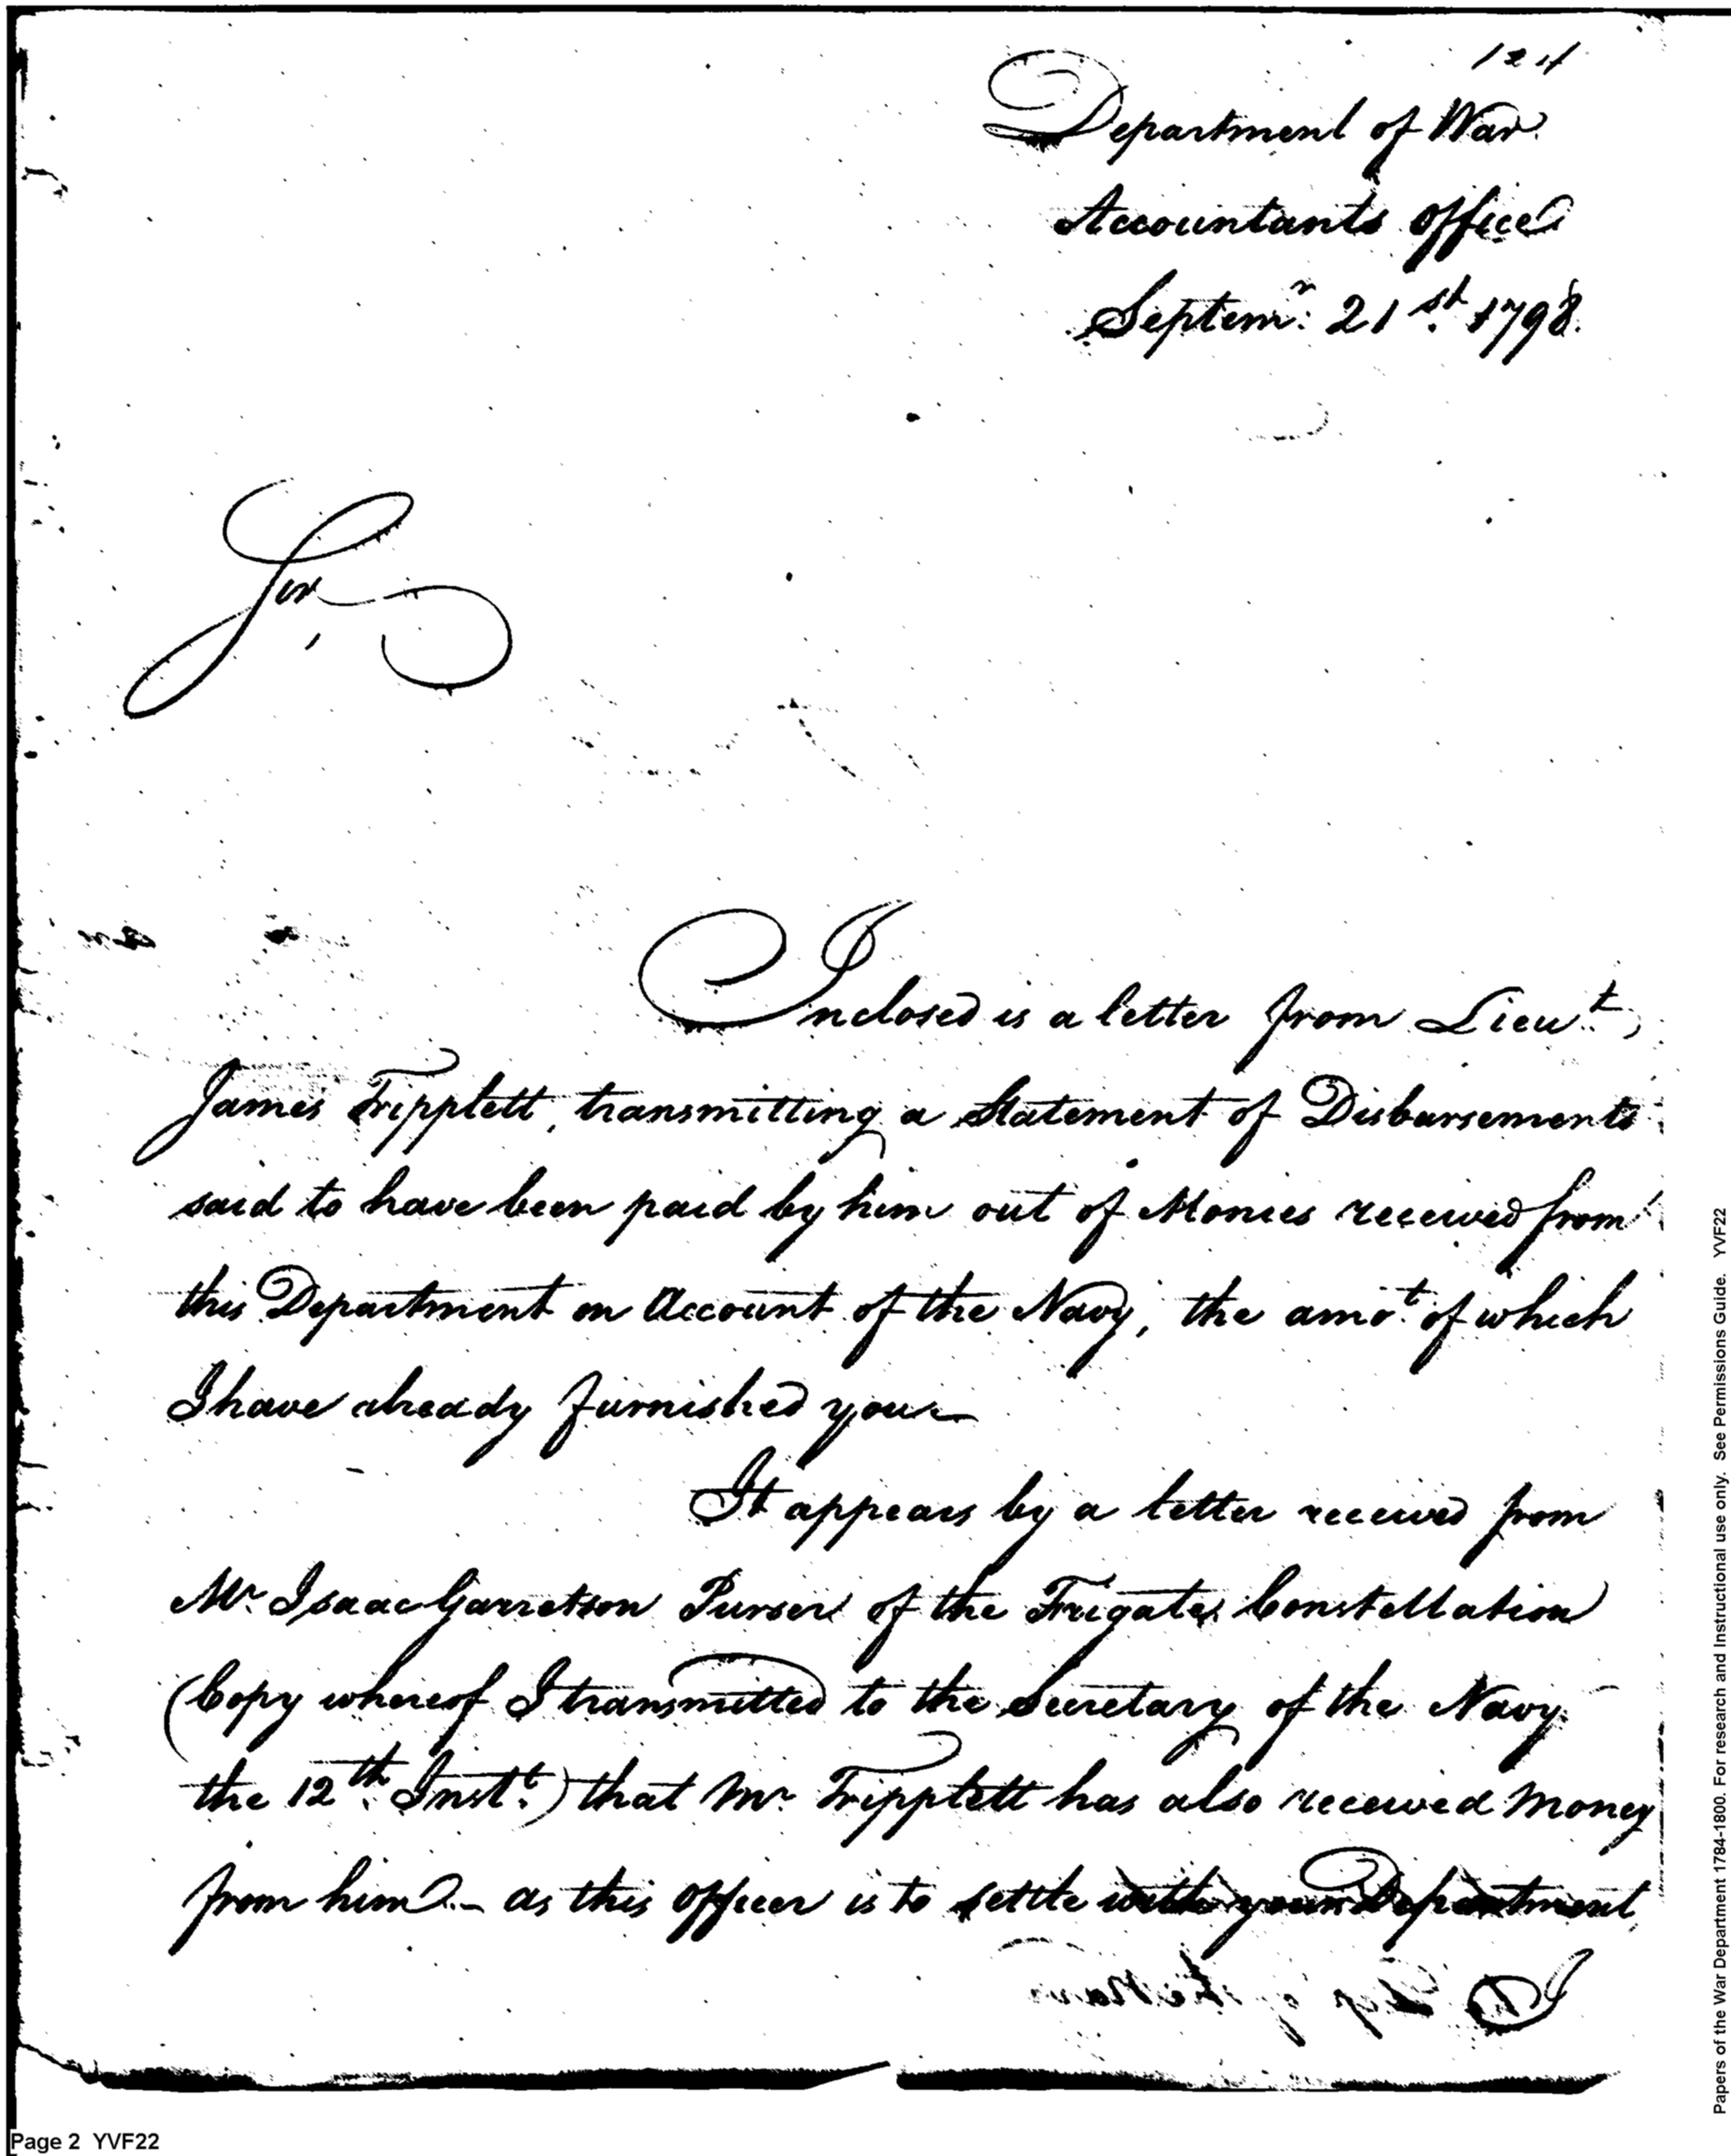 124
Department of War.
Accountants Office
Septemr: 21st. 1798.
Sir,
Inclosed is a letter from Lieut.,
James Tripplett, transmitting a Statement of Disbursements
said to have been paid by him out of Monies received from
this Department on Account of the Navy, the amot. of which
I have already furnished you—
It appears by a letter received from
Mr. Isaac Garretson Purser of the Frigate Constellation
(Copy whereof I transmitted to the Secretary of the Navy
the 12th. Inst.) that Mr. Tripplett has also received Money
from him.— as this Officer is to settle with your Department,
I
Page 2 YVF22
Papers of the War Department 1784-1800. For research and Instructional use only. See Permissions Guide. YVF22